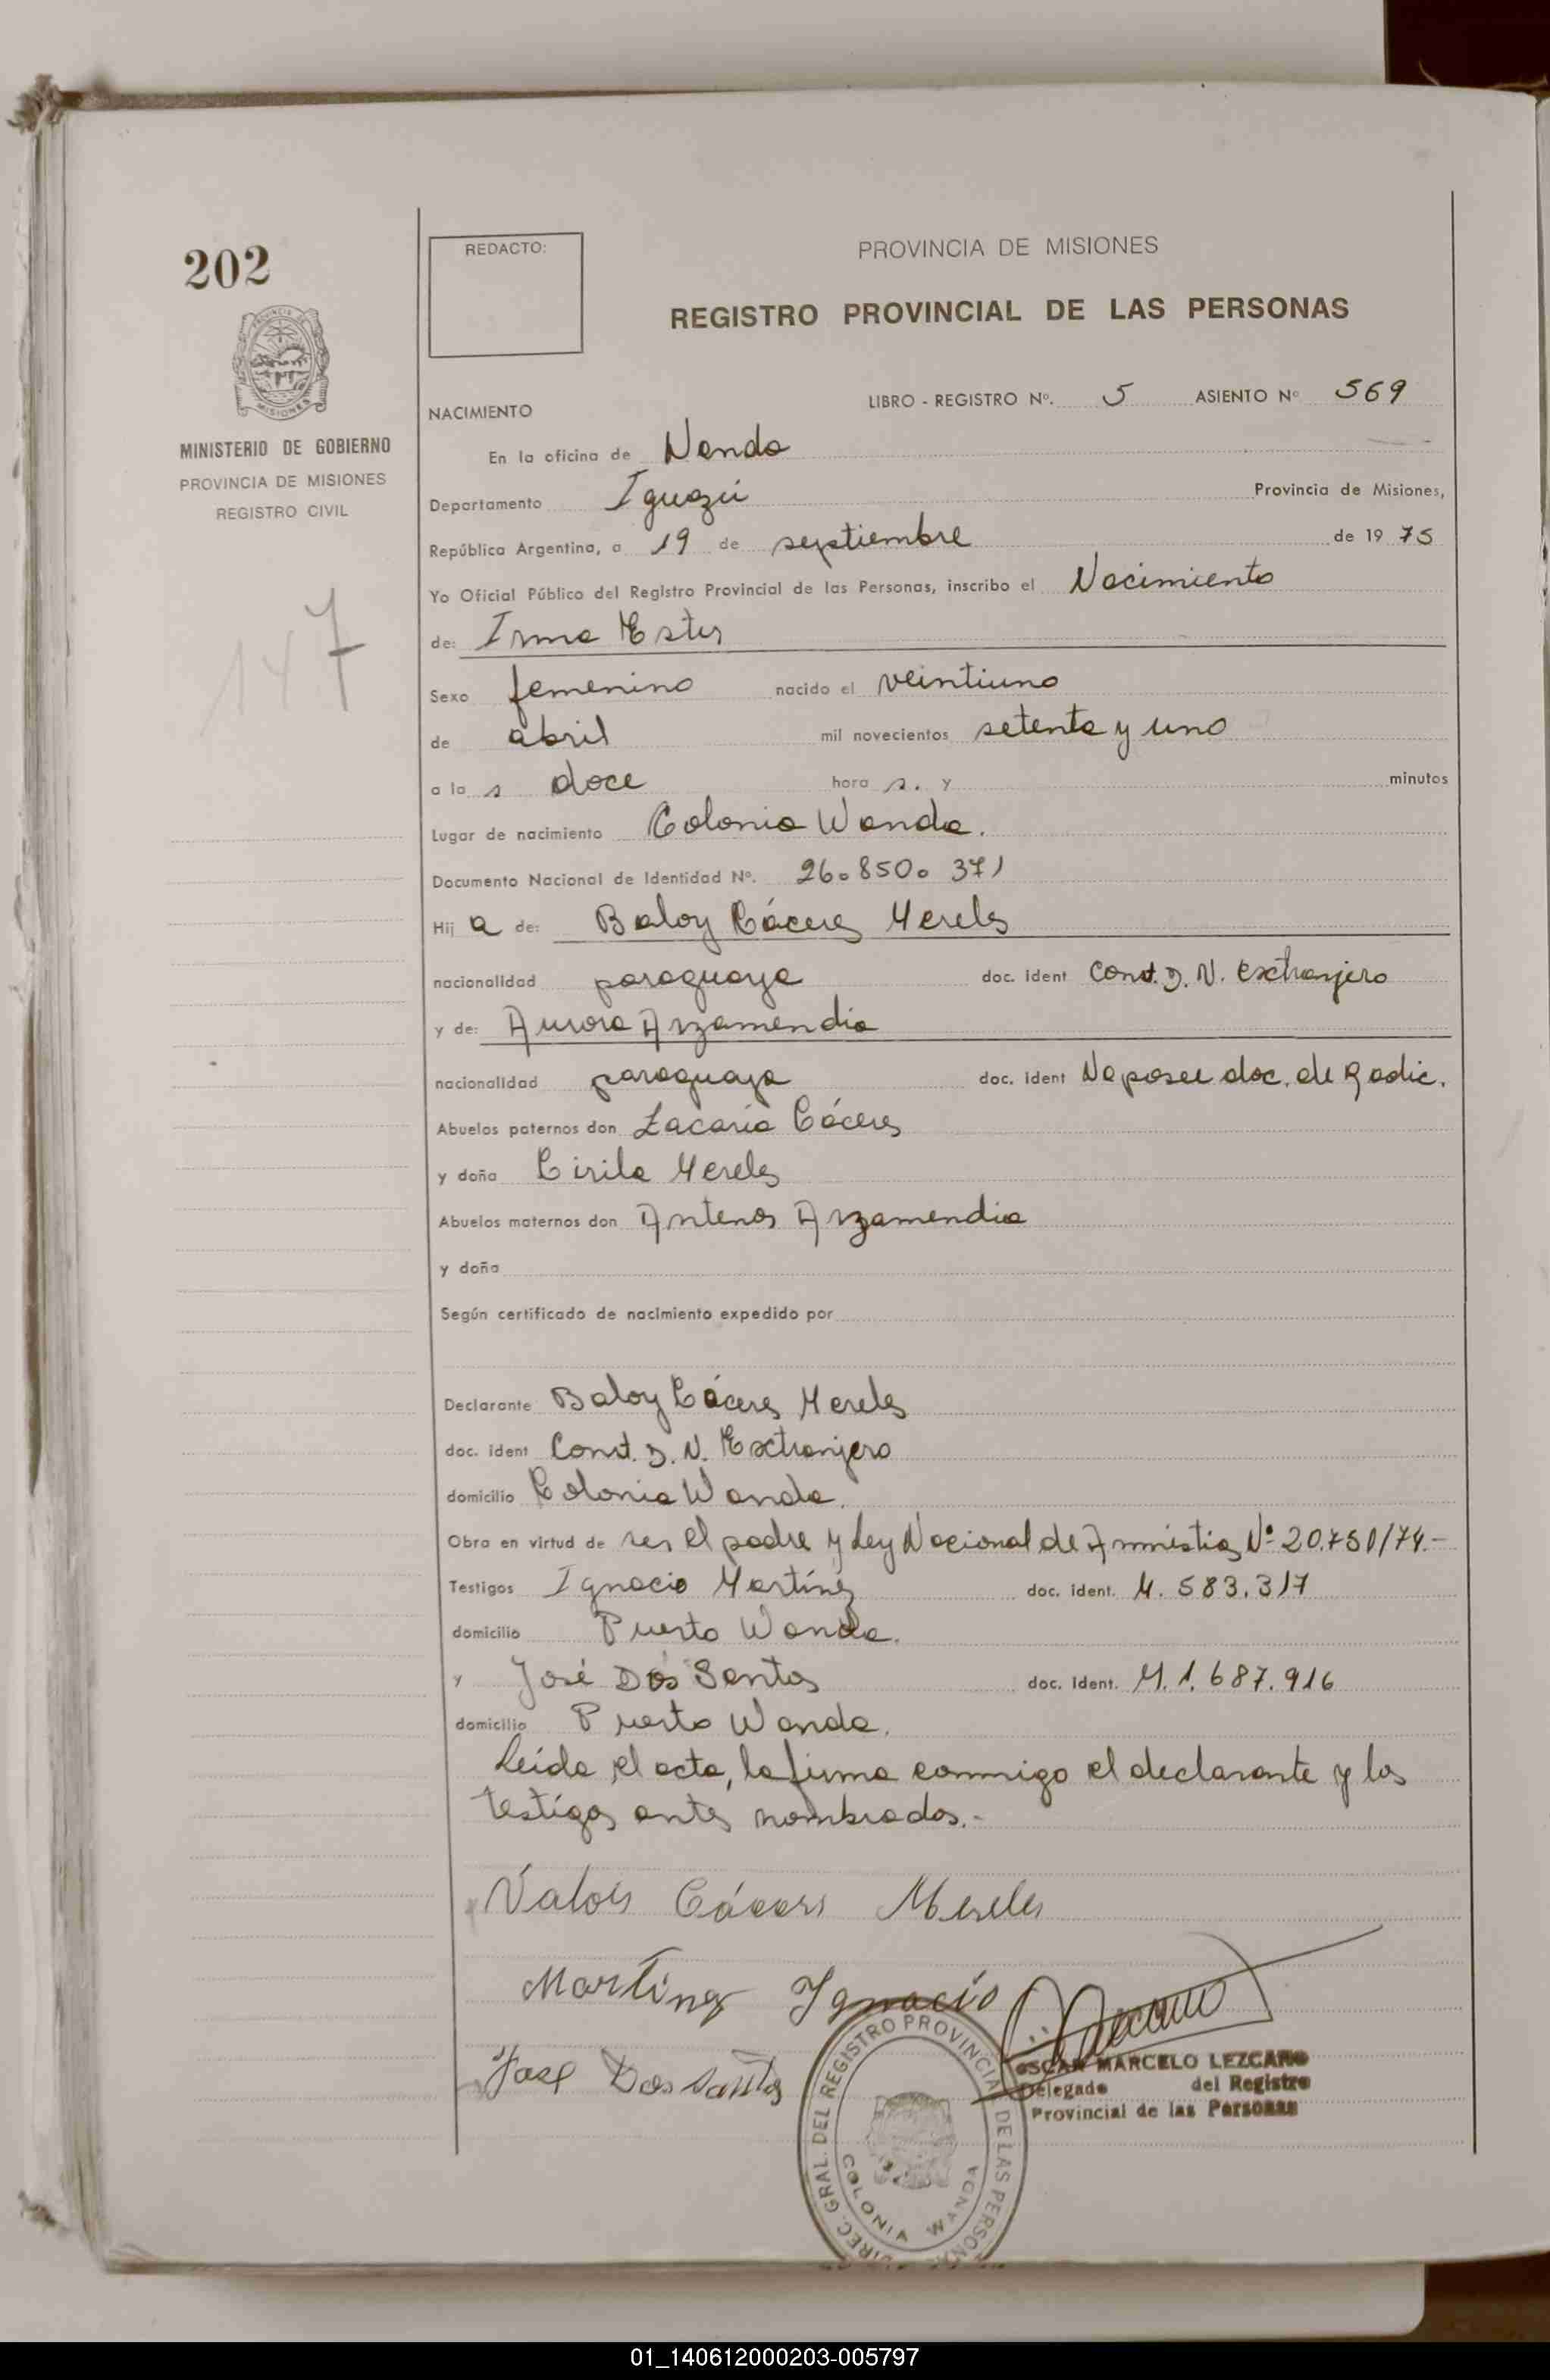 202
REDACTO:
PROVINCIA DE MISIONES
REGISTRO PROVINCIAL DE LAS PERSONAS
MISIONES
MINISTERIO DE GOBIERNO
PROVINCIA DE MISIONES
REGISTRO CIVIL
147
NACIMIENTO
LIBRO - REGISTRO Nº. 5 ASIENTO Nº 569
En la oficina de Wanda
Departamento Iguazú Provincia de Misiones,
República Argentina, a 19 de septiembre de 19 75
Yo Oficial Público del Registro Provincial de las Personas, inscribo el Nacimiento
de: Irma Ester
Sexo femenino nacido el veintiuno
de abril mil novecientos setenta y uno
a la s doce hora s. y minutos
Lugar de nacimiento Colonia Wanda.
Documento Nacional de Identidad Nº. 26.850.371
Hij a de: Baloy Cáceres Mereles
nacionalidad paraguaya doc. ident Const. D. N. Extranjero
y de: Aurora Arzamendia
nacionalidad paraguaya doc. ident No posee doc. de Radic.
Abuelos paternos don Zacaria Cáceres
y doña Cirila Mereles
Abuelos maternos don Antenor Arzamendia
y doña
Según certificado de nacimiento expedido por
Declarante Baloy Cáceres Mereles
doc. ident Const. D. N. Extranjero
domicilio Colonia Wanda.
Obra en virtud de ser el padre y Ley Nacional de Amnistia Nº 20.750/74.-
Testigos Ignacio Martínez doc. ident. M. 583.317
domicilio Puerto Wanda.
y José Dos Santos doc. ident. M. 1.687.916
domicilio Puerto Wanda.
Leída el acta, la firma conmigo el declarante y los
testigos antes nombrados.-
Valois Cáceres Mereles
Martinez Ignacio
Jose Dos Santos
OSCAR MARCELO LEZCANO
Delegado del Registro
Provincial de las Personas
DIREC. GRAL. DEL REGISTRO PROVINCIAL DE LAS PERSONAS
COLONIA WANDA
01_140612000203-005797